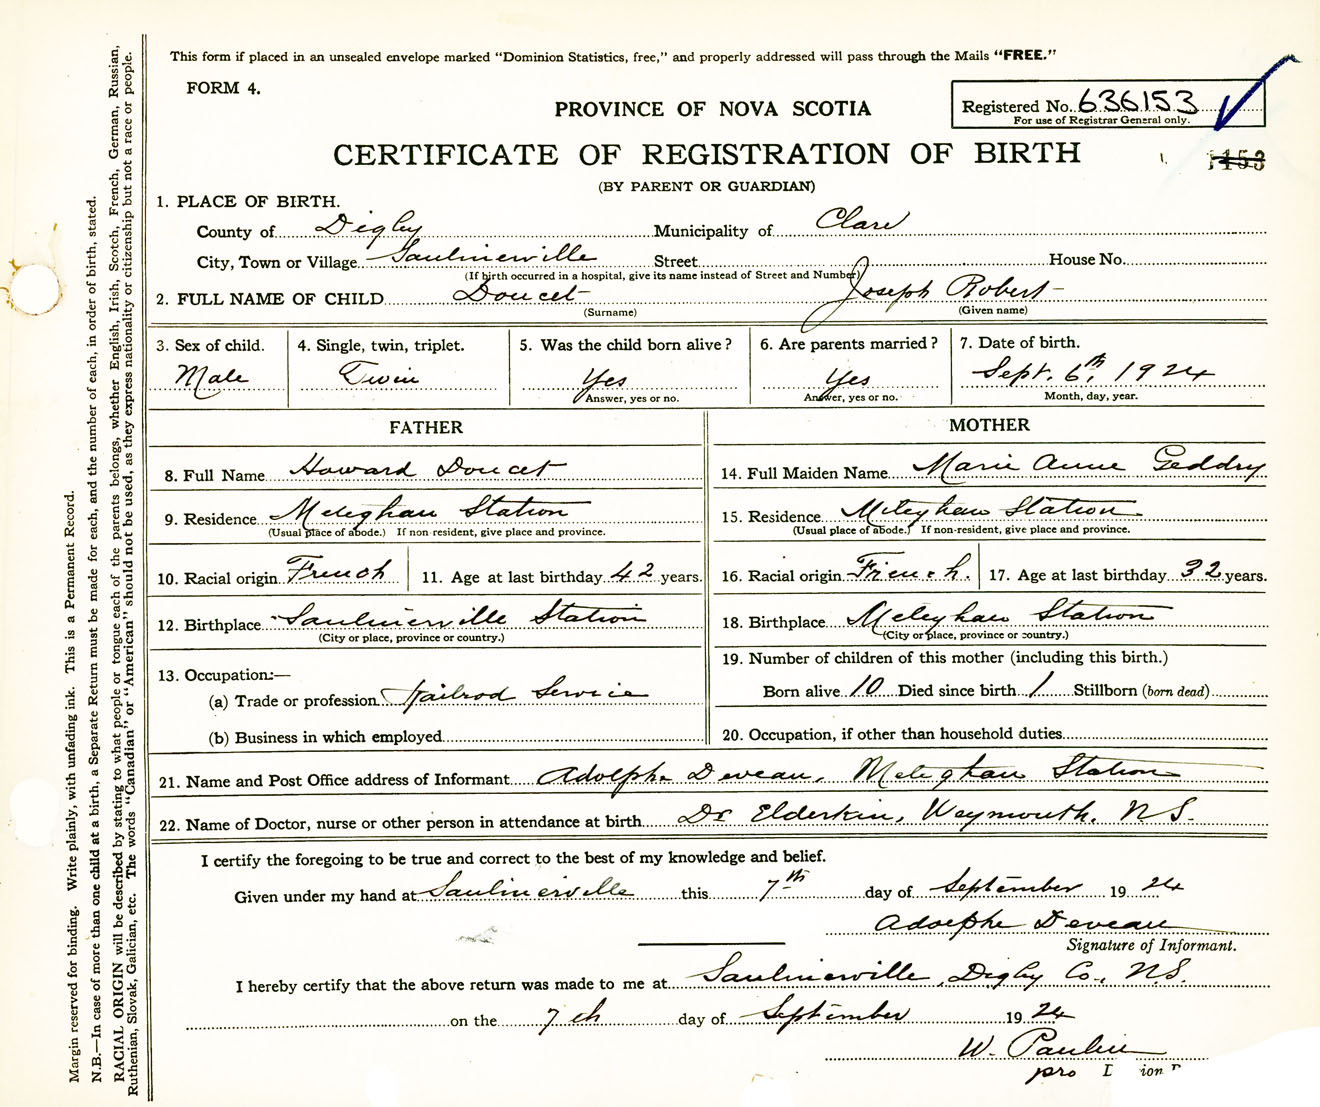 This form if placed in an unsealed envelope marked "Dominion Statistics, free," and properly addressed will pass through the Mails "FREE."
FORM 4.
PROVINCE OF NOVA SCOTIA
Registered No. 636153
For use of Registrar General only.
CERTIFICATE OF REGISTRATION OF BIRTH
1153
(BY PARENT OR GUARDIAN)
1. PLACE OF BIRTH.
County of Digby Municipality of Clare
City, Town or Village Saulnierville Street House No.
(If birth occurred in a hospital, give its name instead of Street and Number)
2. FULL NAME OF CHILD Doucet Joseph Robert
(Surname) (Given name)
3. Sex of child. 4. Single, twin, triplet. 5. Was the child born alive? 6. Are parents married? 7. Date of birth.
Male Twin Yes Yes Sept. 6th, 1924
Answer, yes or no. Answer, yes or no. Month, day, year.
FATHER MOTHER
8. Full Name Howard Doucet 14. Full Maiden Name Marie Anne Geddry
9. Residence Meteghan Station 15. Residence Meteghan Station
(Usual place of abode.) If non-resident, give place and province. (Usual place of abode.) If non-resident, give place and province.
10. Racial origin French 11. Age at last birthday 42 years. 16. Racial origin French. 17. Age at last birthday 32 years.
12. Birthplace Saulnierville Station 18. Birthplace Meteghan Station
(City or place, province or country.) (City or place, province or country.)
13. Occupation:— 19. Number of children of this mother (including this birth.)
(a) Trade or profession Railrod Service Born alive 10 Died since birth 1 Stillborn (born dead)
(b) Business in which employed 20. Occupation, if other than household duties
21. Name and Post Office address of Informant Adolphe Deveau, Meteghan Station
22. Name of Doctor, nurse or other person in attendance at birth Dr Elderkin, Weymouth, N.S.
I certify the foregoing to be true and correct to the best of my knowledge and belief.
Given under my hand at Saulnierville this 7th day of September 1924
Adolphe Deveau
Signature of Informant.
I hereby certify that the above return was made to me at Saulnierville, Digby Co., N.S.
on the 7th day of September 1924
W. Paulin
pro
Margin reserved for binding. Write plainly, with unfading ink. This is a Permanent Record.
N.B.—In case of more than one child at a birth, a Separate Return must be made for each, and the number of each, in order of birth, stated.
RACIAL ORIGIN will be described by stating to what people or tongue each of the parents belongs, whether English, Irish, Scotch, French, German, Russian,
Ruthenian, Slovak, Galician, etc. The words "Canadian" or "American" should not be used, as they express nationality or citizenship but not a race or people.